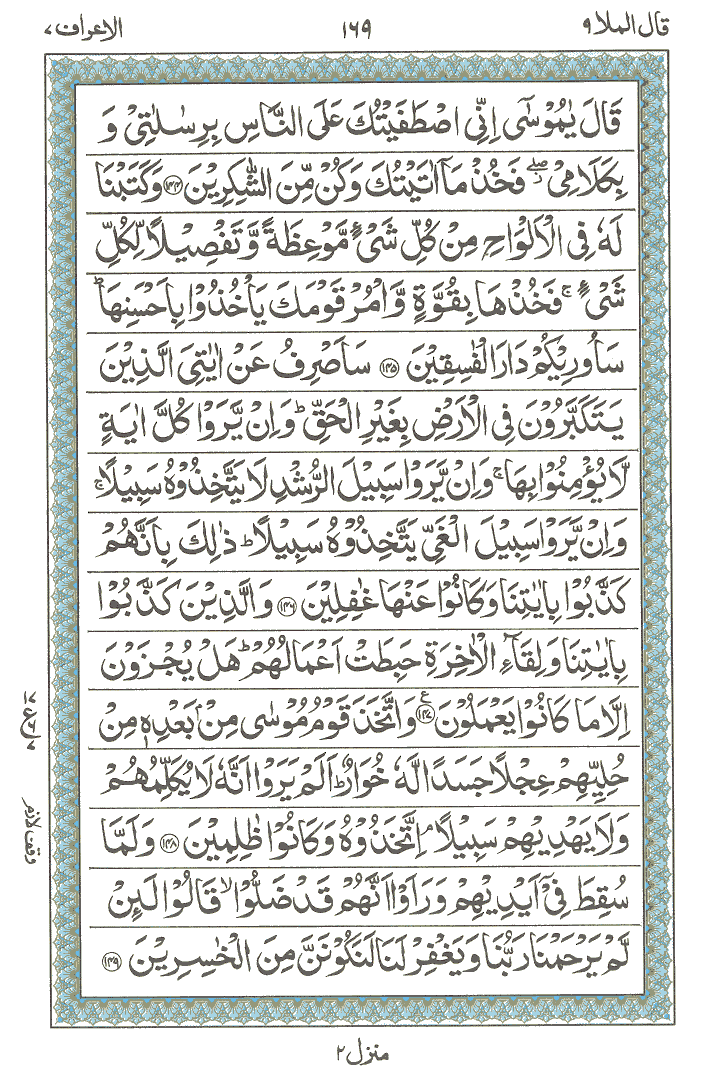 قال الملا ٩ ١٦٩ الاعراف ٧
قَالَ يٰمُوْسٰٓى اِنِّى اصْطَفَيْتُكَ عَلَى النَّاسِ بِرِسٰلٰتِىْ وَ
بِكَلَامِىْ ۖ فَخُذْ مَاۤ اٰتَيْتُكَ وَكُنْ مِّنَ الشّٰكِرِيْنَ ﴿۱۴۴﴾ وَكَتَبْنَا
لَهٗ فِى الْاَلْوَاحِ مِنْ كُلِّ شَىْءٍ مَّوْعِظَةً وَّتَفْصِيْلًا لِّكُلِّ
شَىْءٍ ۚ فَخُذْهَا بِقُوَّةٍ وَّاْمُرْ قَوْمَكَ يَاْخُذُوْا بِاَحْسَنِهَا ؕ
سَاُورِيْكُمْ دَارَ الْفٰسِقِيْنَ ﴿۱۴۵﴾ سَاَصْرِفُ عَنْ اٰيٰتِىَ الَّذِيْنَ
يَتَكَبَّرُوْنَ فِى الْاَرْضِ بِغَيْرِ الْحَقِّ ؕ وَاِنْ يَّرَوْا كُلَّ اٰيَةٍ
لَّا يُؤْمِنُوْا بِهَا ۚ وَاِنْ يَّرَوْا سَبِيْلَ الرُّشْدِ لَا يَتَّخِذُوْهُ سَبِيْلًا ۚ
وَاِنْ يَّرَوْا سَبِيْلَ الْغَىِّ يَتَّخِذُوْهُ سَبِيْلًا ؕ ذٰلِكَ بِاَنَّهُمْ
كَذَّبُوْا بِاٰيٰتِنَا وَكَانُوْا عَنْهَا غٰفِلِيْنَ ﴿۱۴۶﴾ وَالَّذِيْنَ كَذَّبُوْا
بِاٰيٰتِنَا وَلِقَآءِ الْاٰخِرَةِ حَبِطَتْ اَعْمَالُهُمْ ؕ هَلْ يُجْزَوْنَ
اِلَّا مَا كَانُوْا يَعْمَلُوْنَ ﴿۱۴۷﴾ ع وَاتَّخَذَ قَوْمُ مُوْسٰى مِنْۢ بَعْدِهٖ مِنْ
حُلِيِّهِمْ عِجْلًا جَسَدًا لَّهٗ خُوَارٌ ؕ اَلَمْ يَرَوْا اَنَّهٗ لَا يُكَلِّمُهُمْ
وَلَا يَهْدِيْهِمْ سَبِيْلًا ۘ اِتَّخَذُوْهُ وَكَانُوْا ظٰلِمِيْنَ ﴿۱۴۸﴾ وَلَمَّا
سُقِطَ فِىْۤ اَيْدِيْهِمْ وَرَاَوْا اَنَّهُمْ قَدْ ضَلُّوْا ۙ قَالُوْا لَئِنْ
لَّمْ يَرْحَمْنَا رَبُّنَا وَيَغْفِرْ لَنَا لَنَكُوْنَنَّ مِنَ الْخٰسِرِيْنَ ﴿۱۴۹﴾
وقف لازم
منزل ٢